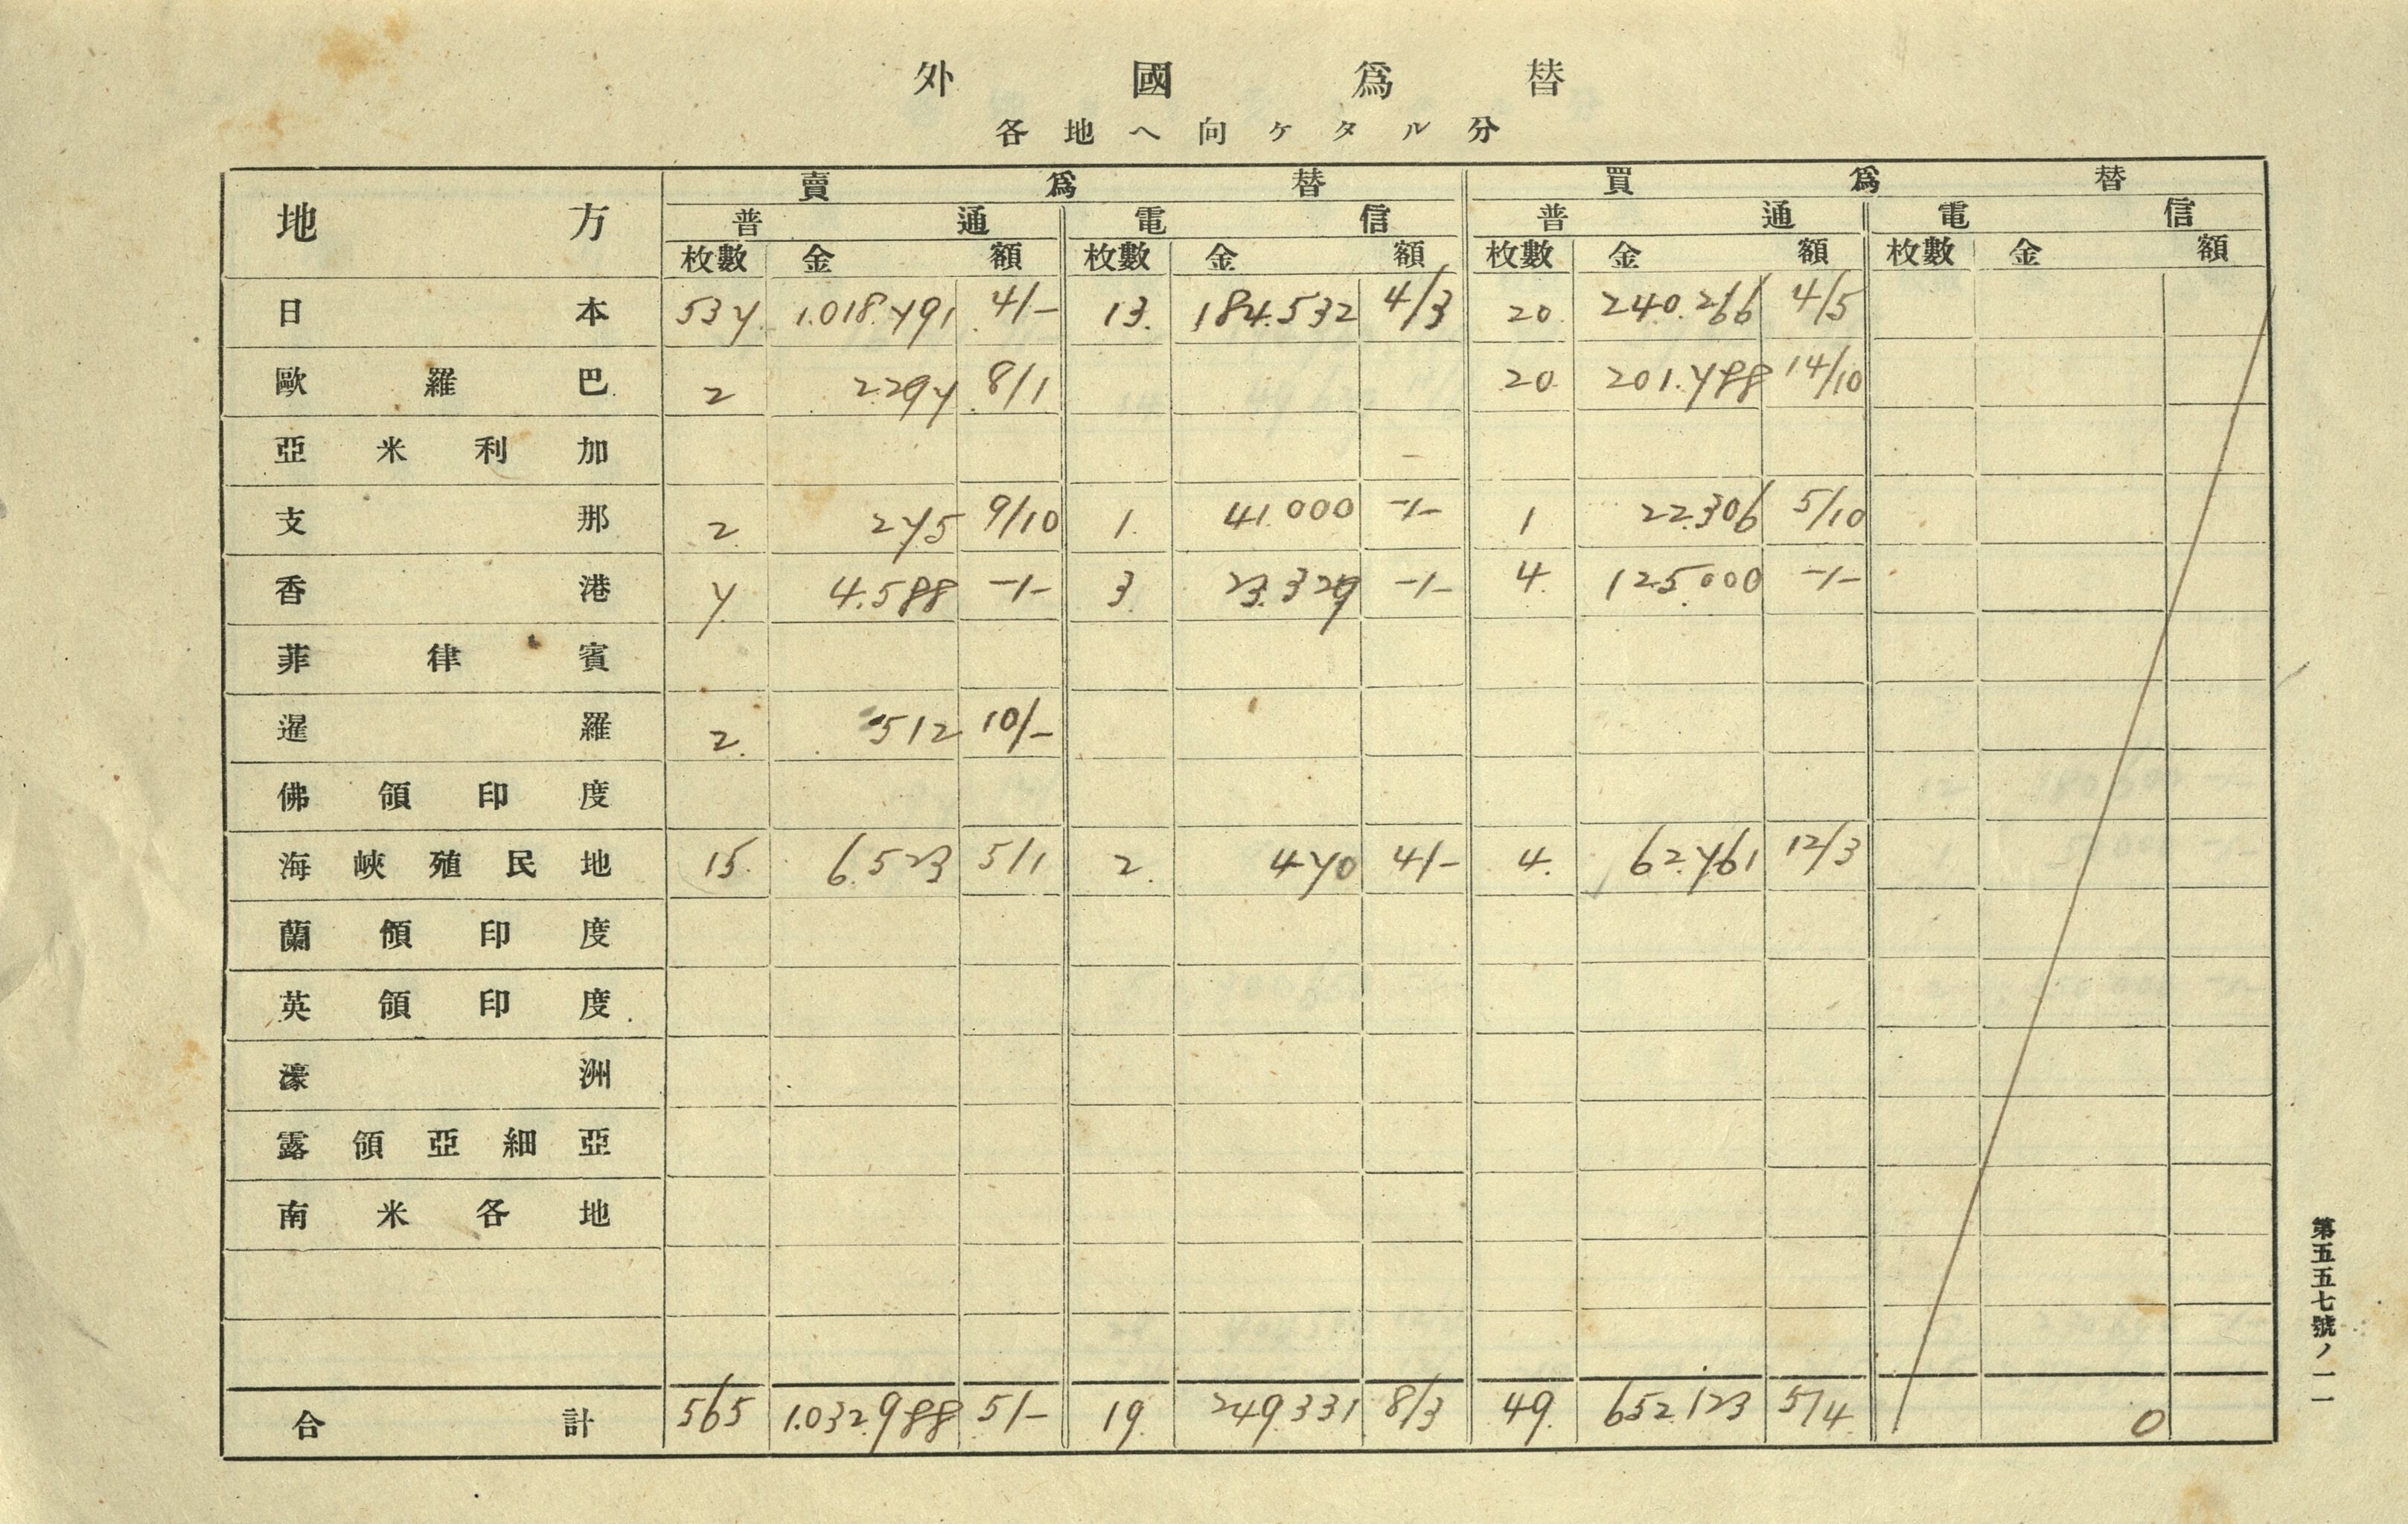 外國爲替
各地へ向ケタル分
地方 賣爲替 買爲替
普通 電信 普通 電信
枚數 金額 枚數 金額 枚數 金額 枚數 金額
日本 537. 1.018.791 4/- 13. 184.532 4/3 20 240.266 4/5
歐羅巴 2 2297 8/1 20 201.788 14/10
亞米利加
支那 2 275 9/10 1. 41.000 -/- 1 22.306 5/10
香港 7. 4.588 -/- 3. 23.329 -/- 4. 125.000 -/-
菲律賓
暹羅 2. 512 10/-
佛領印度
海峽殖民地 15. 6.523 5/1 2. 470 4/- 4. 62.761 12/3
蘭領印度
英領印度
濠洲
露領亞細亞
南米各地
合計 565 1.032.988 5/- 19 249.331 8/3 49. 652.123 5/4 0
第五五七號ノ一一